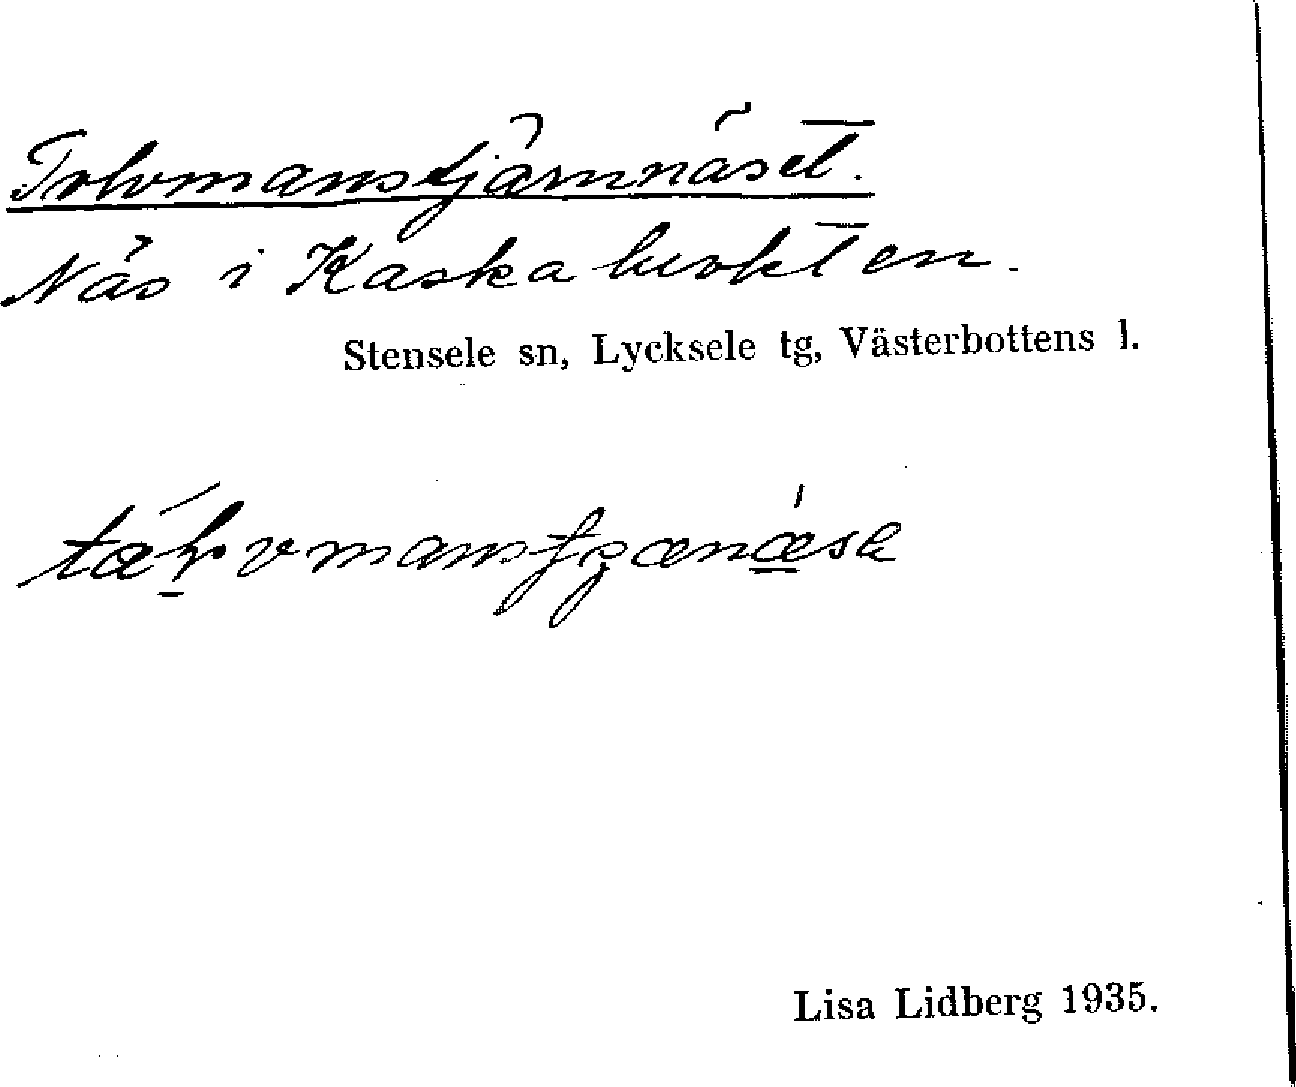 Tolvmanstjärnnäset.
Näs i Kaskabukten.
Stensele sn, Lycksele tg, Västerbottens l.
Lisa Lidberg 1935.